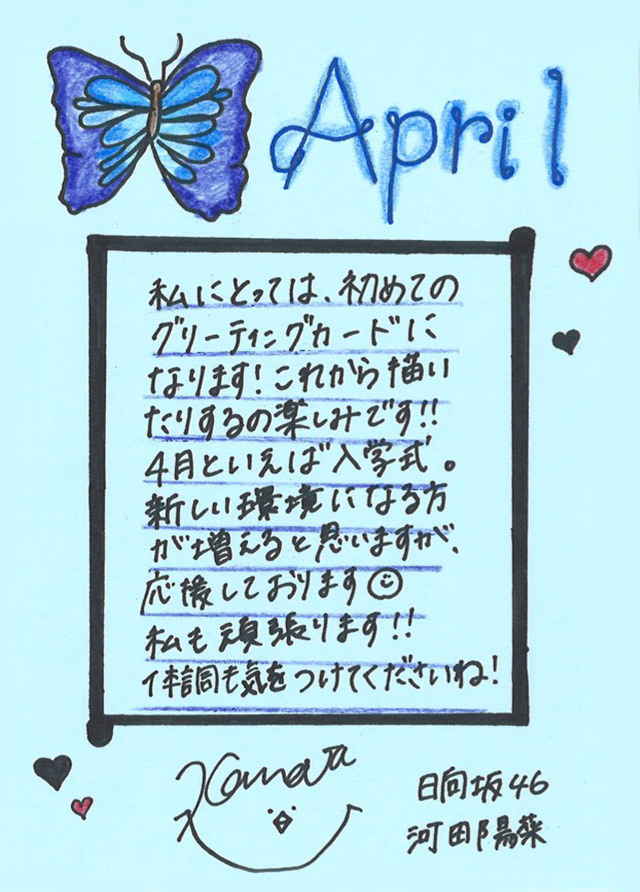 April
私にとっては、初めての
グリーティングカードに
なります！これから描い
たりするの楽しみです!!
4月といえば入学式。
新しい環境になる方
が増えると思いますが、
応援しております
私も頑張ります!!
体調も気をつけてくださいね！
Kanava
日向坂46
河田陽菜